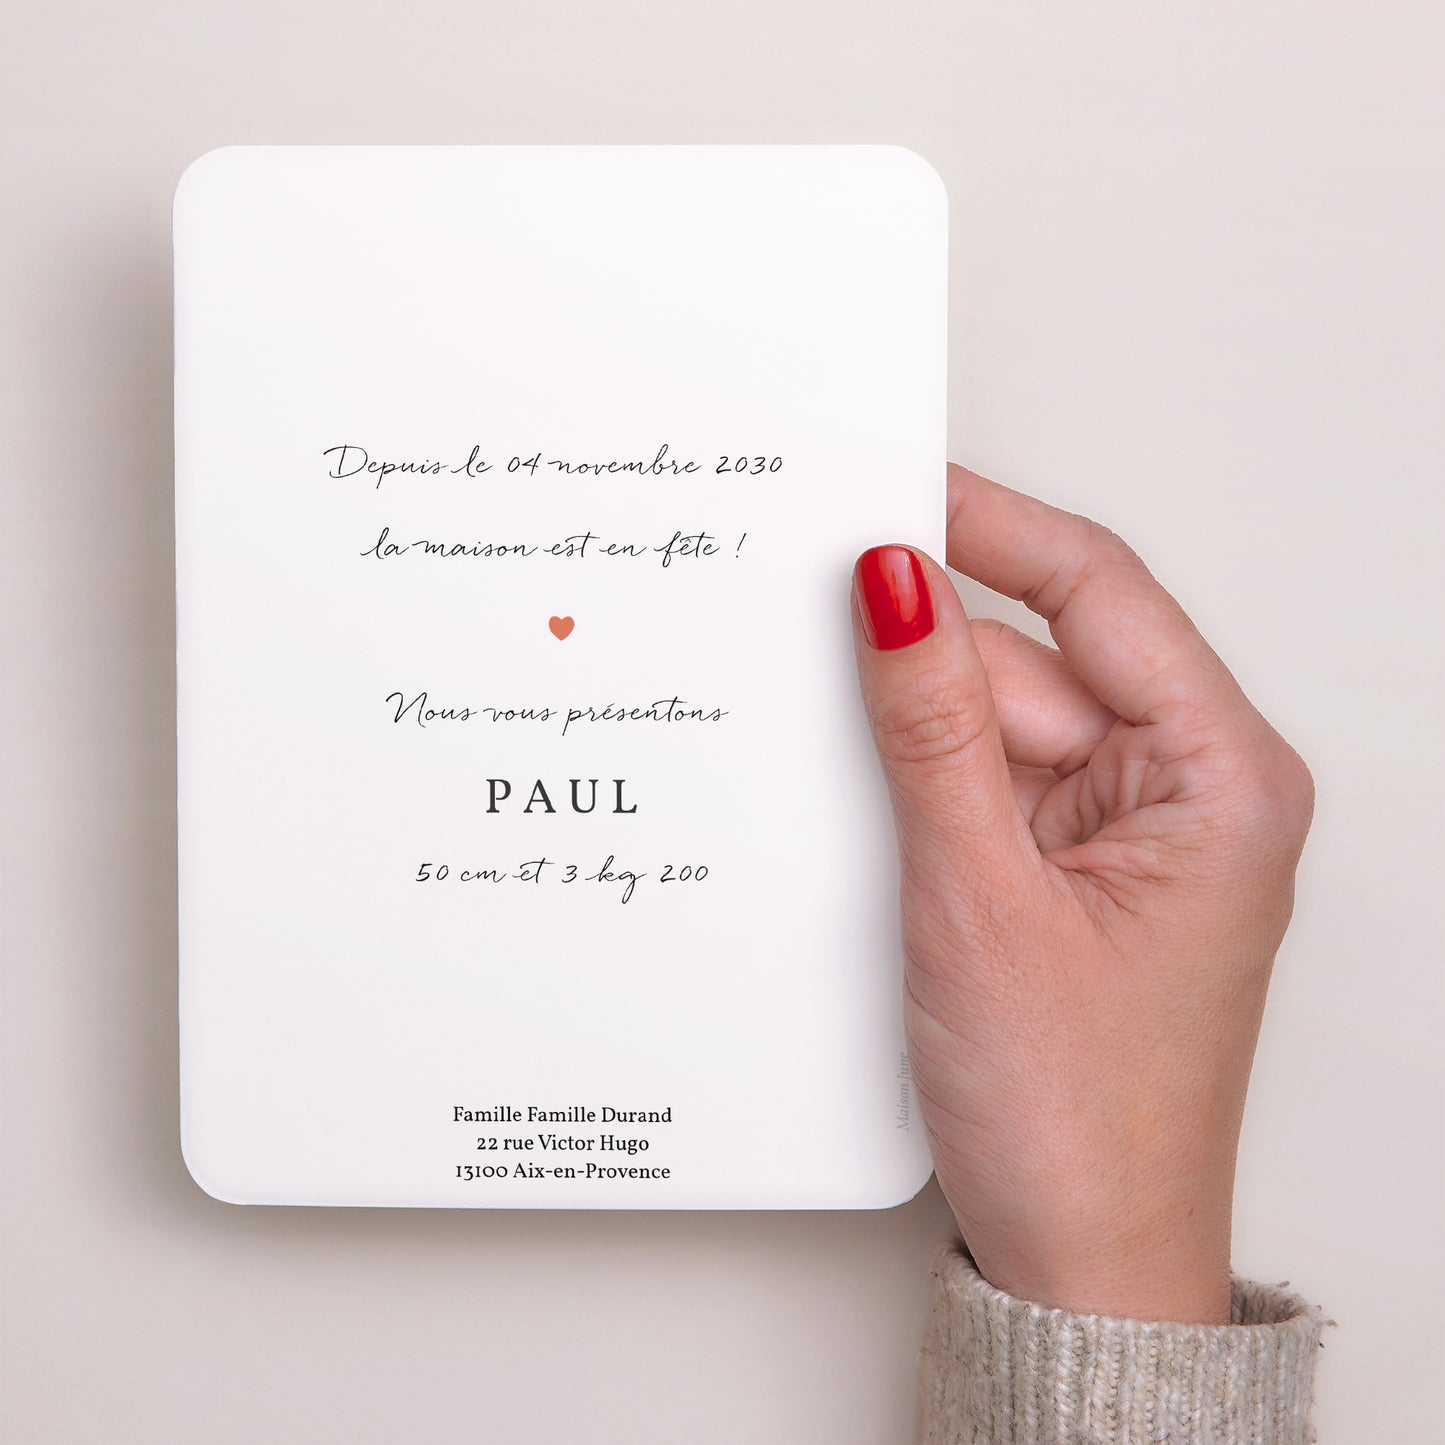 Depuis le 04 novembre 2030
la maison est en fête !
Nous vous présentons
PAUL
50 cm et 3 kg 200
Famille Famille Durand
22 rue Victor Hugo
13100 Aix-en-Provence
Maison June